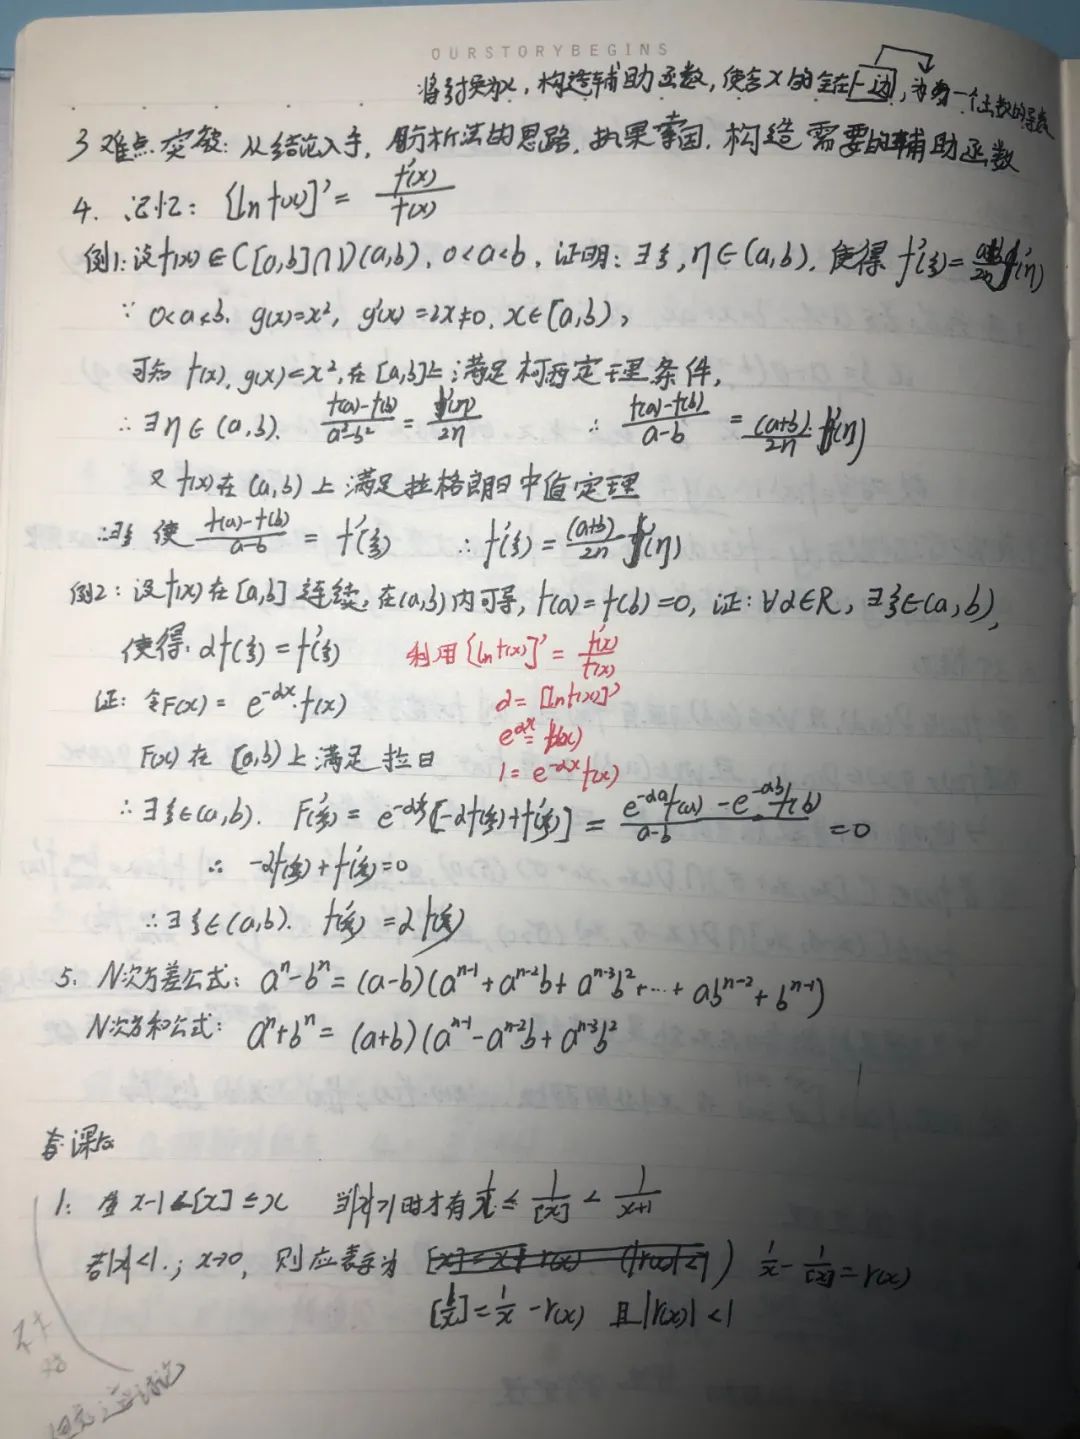 OURSTORYBEGINS
将ξ换为x,构造辅助函数,使含x的全在一边,为一个函数的导数
3 难点突破:从结论入手,用分析法的思路,执果索因,构造需要的辅助函数
4. 记忆:[ln f(x)]' = f'(x)/f(x)
例1:设f(x)∈C[a,b]∩D(a,b),0<a<b,证明:∃ξ,η∈(a,b),使得 f'(ξ)=(a+b)/2η f'(η)
∵ 0<a<b, g(x)=x², g'(x)=2x≠0, x∈[a,b),
可知 f(x), g(x)=x²,在[a,b]上满足柯西定理条件,
∴∃η∈(a,b). (f(a)-f(b))/(a²-b²) = f'(η)/2η ∴ (f(a)-f(b))/(a-b) = (a+b)/2η · f'(η)
又 f(x)在(a,b)上满足拉格朗日中值定理
∴∃ξ 使 (f(a)-f(b))/(a-b) = f'(ξ) ∴ f'(ξ) = (a+b)/2η f'(η)
例2:设f(x)在[a,b]连续,在(a,b)内可导,f(a)=f(b)=0,证:∀α∈R,∃ξ∈(a,b),
使得:αf(ξ)=f'(ξ) 利用[ln f(x)]' = f'(x)/f(x)
证:令F(x)= e^{-αx}·f(x) α=[ln f(x)]'
e^{αx}=f(x)
F(x)在[a,b)上满足拉日 1=e^{-αx}f(x)
∴∃ξ∈(a,b). F'(ξ)= e^{-αξ}[-αf(ξ)+f'(ξ)] = (e^{-αa}f(a) - e^{-αb}f(b))/(a-b) =0
∴ -αf(ξ)+f'(ξ)=0
∴∃ξ∈(a,b). f'(ξ)=αf(ξ)
5. N次方差公式: aⁿ-bⁿ=(a-b)(a^{n-1}+a^{n-2}b+a^{n-3}b²+…+ab^{n-2}+b^{n-1})
N次方和公式: aⁿ+bⁿ=(a+b)(a^{n-1}-a^{n-2}b+a^{n-3}b²
1: x-1<[x]≤x 当|x|>1时才有 1/x ≤ 1/[x] < 1/(x+1)
若|x|<1.; x→0, 则应表示为 1/x - 1/[x] = r(x)
[1/x]=1/x - r(x) 且|r(x)|<1